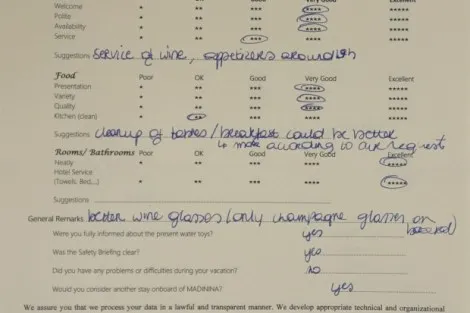 Very Good
Welcome * ** *** **** *****
Polite * ** *** **** *****
Availability * ** *** **** *****
Service * ** *** **** *****
Suggestions Service of wine, appetizers around 19h
Food Poor OK Good Very Good Excellent
Presentation * ** *** **** *****
Variety * ** *** **** *****
Quality * ** *** **** *****
Kitchen (clean) * ** *** **** *****
Suggestions cleanup of tables / breakfast could be better
↳ made according to our request
Rooms/ Bathrooms Poor OK Good Very Good Excellent
Neatly * ** *** **** *****
Hotel Service
(Towels; Bed,...) * ** *** **** *****
Suggestions
General Remarks better wine glasses (only champagne glasses on board)
Were you fully informed about the present water toys? yes
Was the Safety Briefing clear? yes
Did you have any problems or difficulties during your vacation? no
Would you consider another stay onboard of MADININA? yes
We assure you that we process your data in a lawful and transparent manner. We develop appropriate technical and organizational